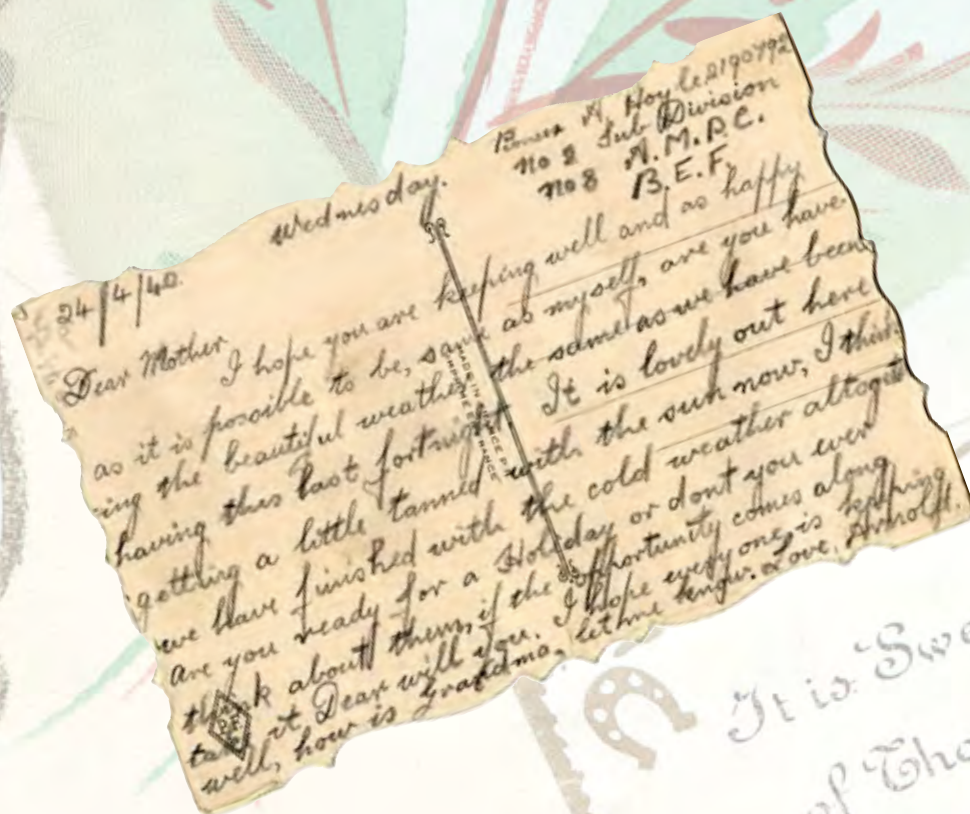 A. Hoyle 2190792
No 2 Sub Division
No 8 A.M.P.C.
B.E.F.
Wednesday.
24/4/40.
Dear Mother,
I hope you are keeping well and as happy
as it is possible to be, same as myself, are you have-
ing the beautiful weather the same as we have been
having this last fortnight It is lovely out here
getting a little tanned with the sun now, I think
we have finished with the cold weather altoget
are you ready for a Holiday or dont you ever
think about them, if the opportunity comes along
take it Dear will you. I hope every one is keeping
well, how is Grandma, let me know. Love, Arnold.
MADE IN FRANCE
It is Swe
of Tho